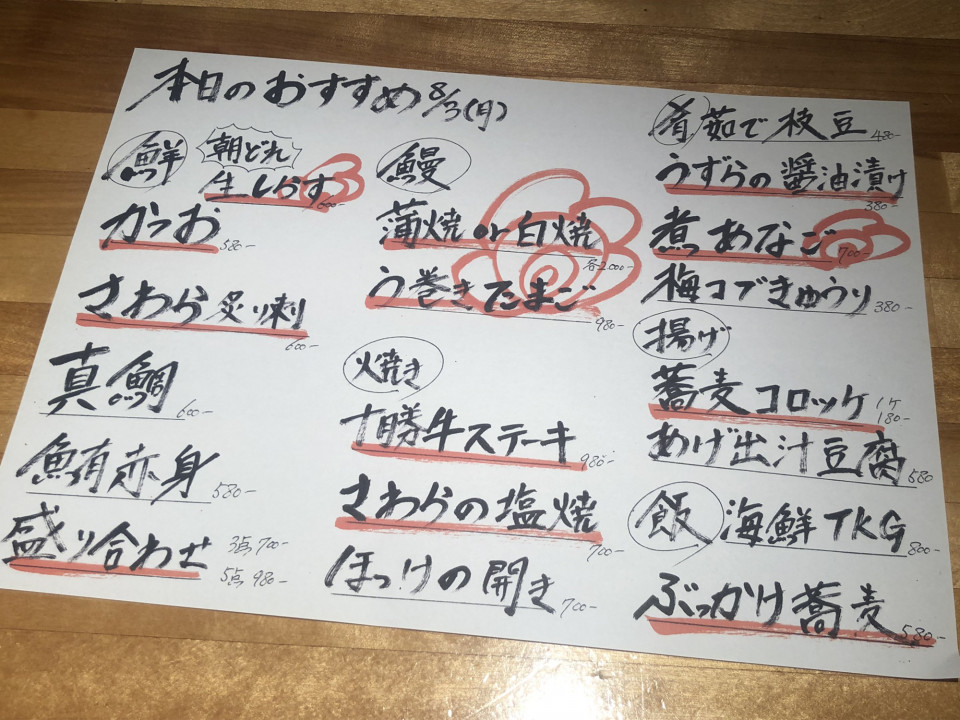 本日のおすすめ 8/3(月)
鮮 朝どれ
生しらす 600-
かつお 580-
さわら炙り刺 600-
真鯛 600-
鮪赤身 580-
盛り合わせ 3点 700-
5点 980-
鰻
蒲焼 or 白焼 各2000-
う巻きたまご 980-
火焼き
十勝牛ステーキ 980-
さわらの塩焼 700-
ほっけの開き 700-
肴 茹で枝豆 480-
うずらの醤油漬け 380-
煮あなご 700-
梅コブきゅうり 380-
揚げ
蕎麦コロッケ 1ケ 180-
あげ出汁豆腐 580
飯 海鮮TKG 800-
ぶっかけ蕎麦 580-